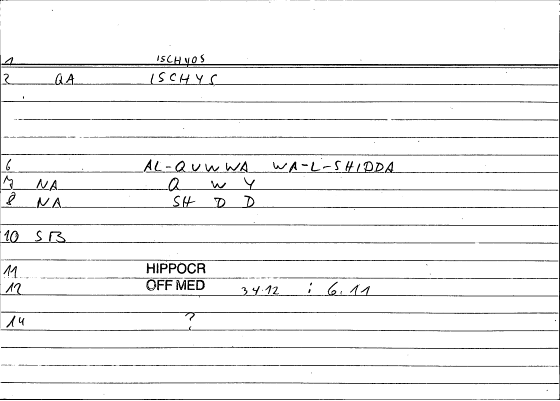 1 ISCHYOS
2 QA ISCHYS
6 AL-QUWWA WA-L-SHIDDA
7 NA Q W Y
8 NA SH D D
10 SB
11 HIPPOCR
12 OFF MED 34.12 : 6.11
14 ?